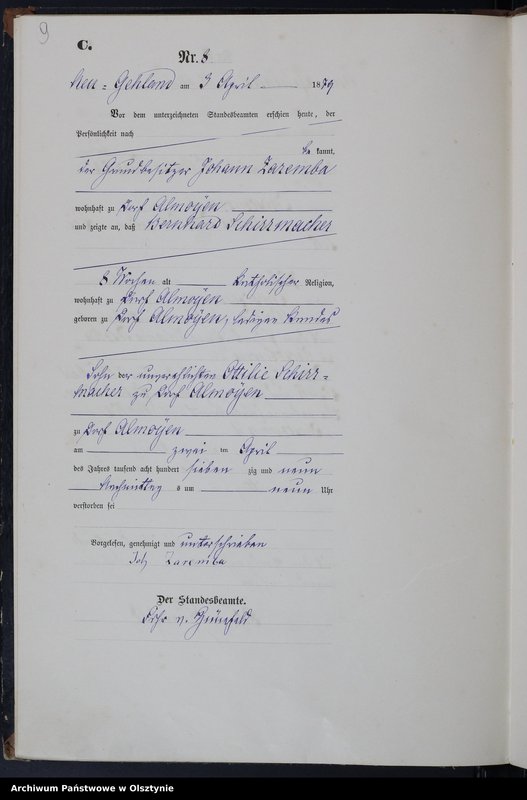 9
C.
Nr. 8
Neu-Gehland am 3 April 1879
Vor dem unterzeichneten Standesbeamten erschien heute, der
Persönlichkeit nach
be kannt,
der Grundbesitzer Johann Zaremba
wohnhaft zu Dorf Almoyen
und zeigte an, daß Bernhard Schirrmacher
8 Wochen alt katholischer Religion,
wohnhaft zu Dorf Almoyen
geboren zu Dorf Almoyen, ledigen Standes
Sohn der unverehelichten Ottilie Schirr-
macher zu Dorf Almoyen
zu Dorf Almoyen
am zwei ten April
des Jahres tausend acht hundert sieben zig und neun
Nachmittag s um neun Uhr
verstorben sei
Vorgelesen, genehmigt und unterschrieben
Joh Zaremba
Der Standesbeamte.
v. Grünfeld
Archiwum Państwowe w Olsztynie